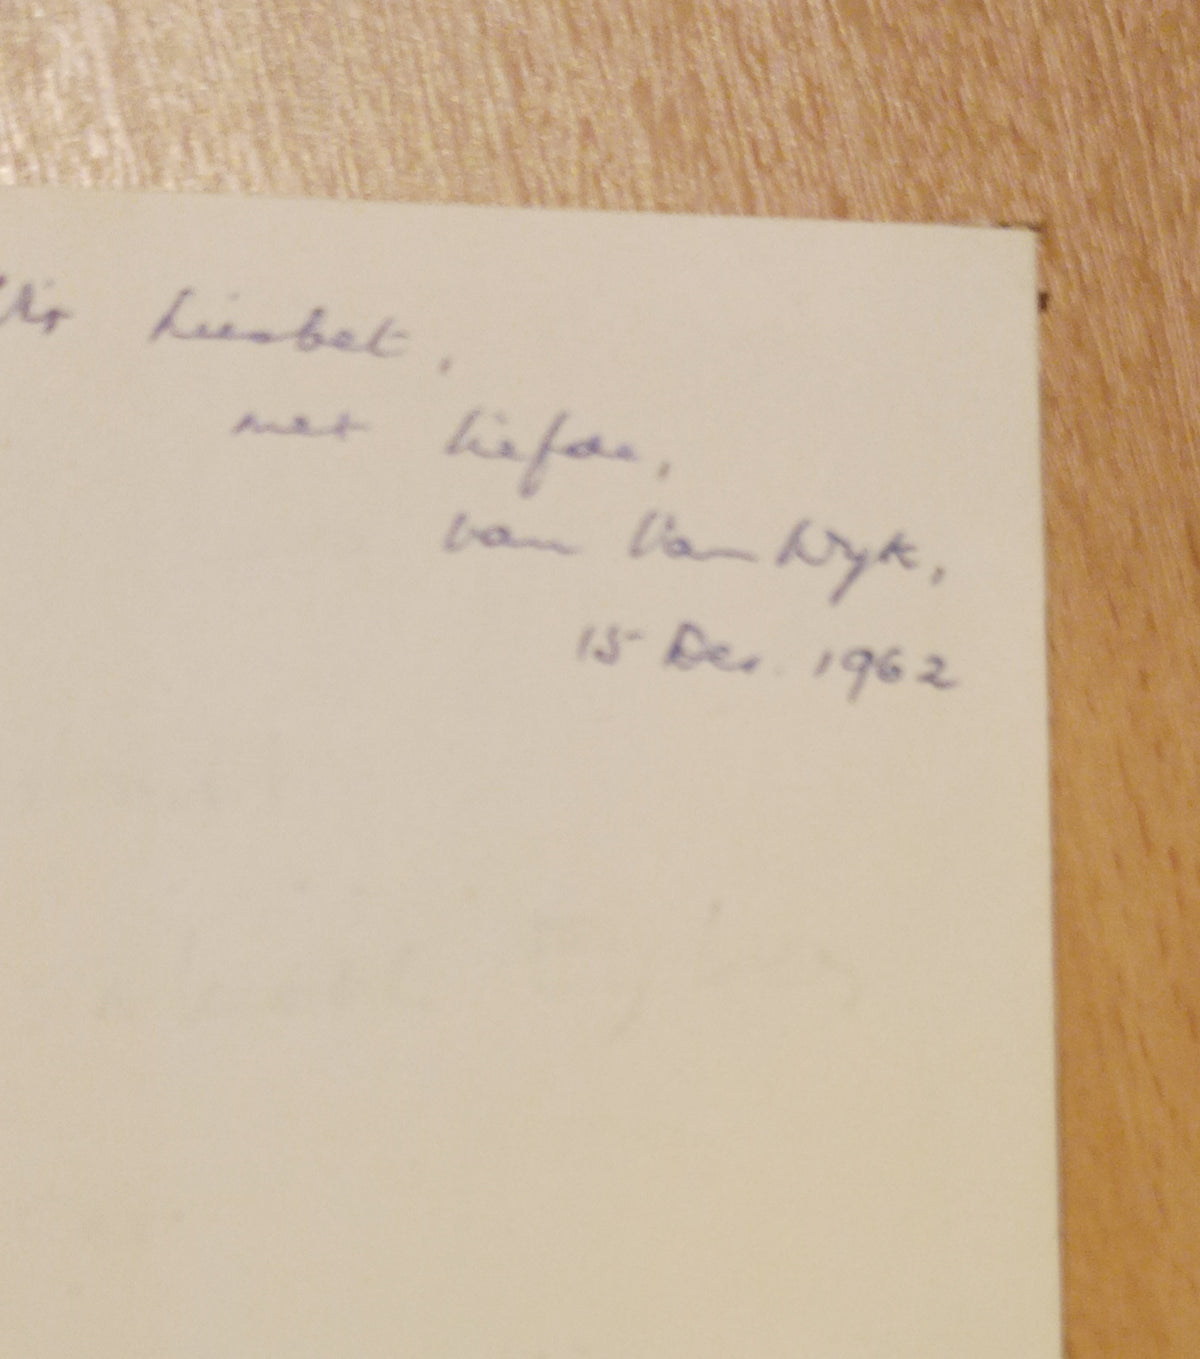 Vir Liesbet,
met liefde,
van Van Wyk,
15 Des. 1962